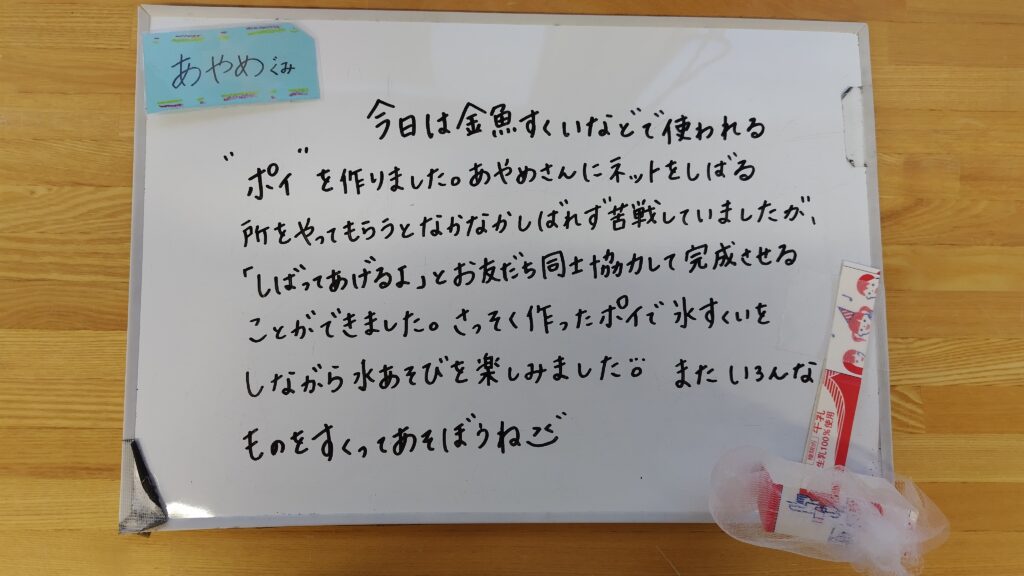 あやめぐみ
今日は金魚すくいなどで使われる
"ポイ"を作りました。あやめさんにネットをしばる
所をやってもらうとなかなかしばれず苦戦していましたが、
「しばってあげるよ」とお友だち同士協力して完成させる
ことができました。さっそく作ったポイで氷すくいを
しながら水あそびを楽しみました。またいろんな
ものをすくってあそぼうね
牛乳
生乳100%使用